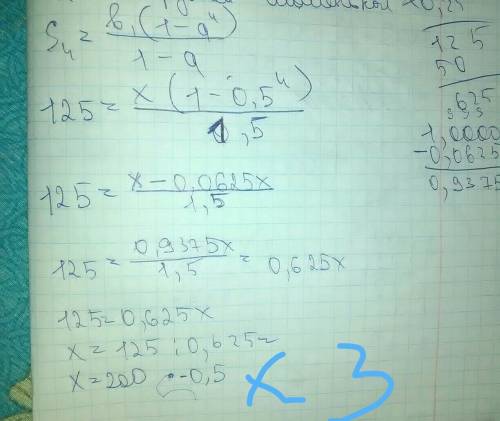 S₄ = b₁(1-q⁴) / 1-q
125 = x(1-0,5⁴) / 1,5
125 = x-0,0625x / 1,5
125 = 0,9375x / 1,5 = 0,625x
125=0,625x
x=125:0,625=
x=200 · -0,5
x 3
125
50
625
1,0000
-0,0625
0,9375